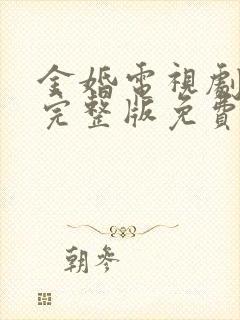 金婚電視劇
完整版免費
朝參